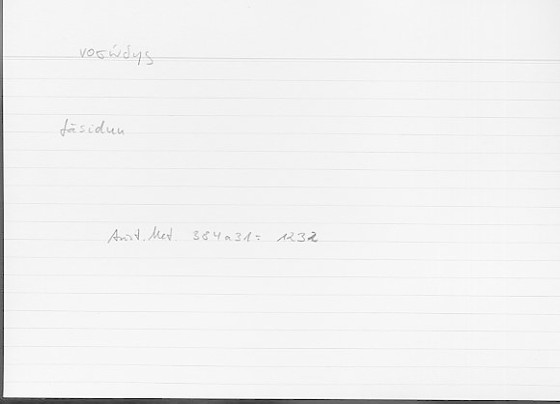 νοσώδης
fāsidun
Arist. Met. 384a31 = 1232